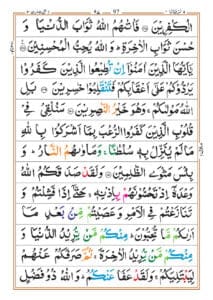 97
الْكٰفِرِيْنَ فَاٰتٰىهُمُ اللّٰهُ ثَوَابَ الدُّنْيَا وَ
حُسْنَ ثَوَابِ الْاٰخِرَةِ ؕ وَاللّٰهُ يُحِبُّ الْمُحْسِنِيْنَ
يٰۤاَيُّهَا الَّذِيْنَ اٰمَنُوْۤا اِنْ تُطِيْعُوا الَّذِيْنَ كَفَرُوْا
يَرُدُّوْكُمْ عَلٰۤى اَعْقَابِكُمْ فَتَنْقَلِبُوْا خٰسِرِيْنَ بَلِ اللّٰهُ
مَوْلٰىكُمْ ۚ وَهُوَ خَيْرُ النّٰصِرِيْنَ سَنُلْقِيْ فِيْ
قُلُوْبِ الَّذِيْنَ كَفَرُوا الرُّعْبَ بِمَاۤ اَشْرَكُوْا بِاللّٰهِ
مَا لَمْ يُنَزِّلْ بِهٖ سُلْطٰنًا ۚ وَمَاْوٰىهُمُ النَّارُ ؕ وَ
بِئْسَ مَثْوَى الظّٰلِمِيْنَ وَلَقَدْ صَدَقَكُمُ اللّٰهُ
وَعْدَهٗۤ اِذْ تَحُسُّوْنَهُمْ بِاِذْنِهٖ ۚ حَتّٰۤى اِذَا فَشِلْتُمْ وَ
تَنَازَعْتُمْ فِي الْاَمْرِ وَعَصَيْتُمْ مِّنْۢ بَعْدِ مَاۤ
اَرٰىكُمْ مَّا تُحِبُّوْنَ ؕ مِنْكُمْ مَّنْ يُّرِيْدُ الدُّنْيَا وَ
مِنْكُمْ مَّنْ يُّرِيْدُ الْاٰخِرَةَ ۚ ثُمَّ صَرَفَكُمْ عَنْهُمْ
لِيَبْتَلِيَكُمْ ۚ وَلَقَدْ عَفَا عَنْكُمْ ؕ وَاللّٰهُ ذُوْ فَضْلٍ